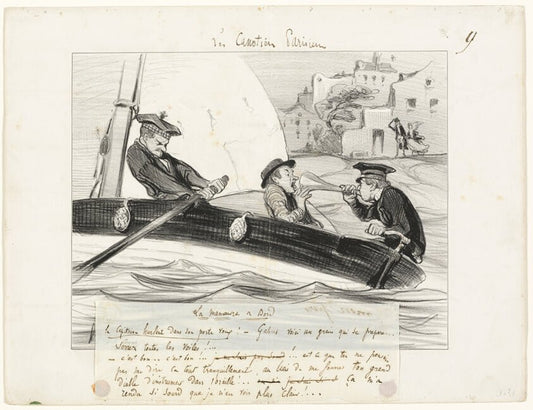 Les Canotiers Parisiens
9
La manoeuvre à Bord
Le Capitaine hurlant dans son porte voix! - Gabier voici un grain qui se prépare...
Serrez toutes les voiles!...
- c'est bon... c'est bon!... est ce que tu ne pouvais
pas me dire ça tout tranquillement, au lieu de me fourrer ton grand
diable d'instrument dans l'oreille... Ça m'a
rendu si sourd que je n'en vois plus clair!...